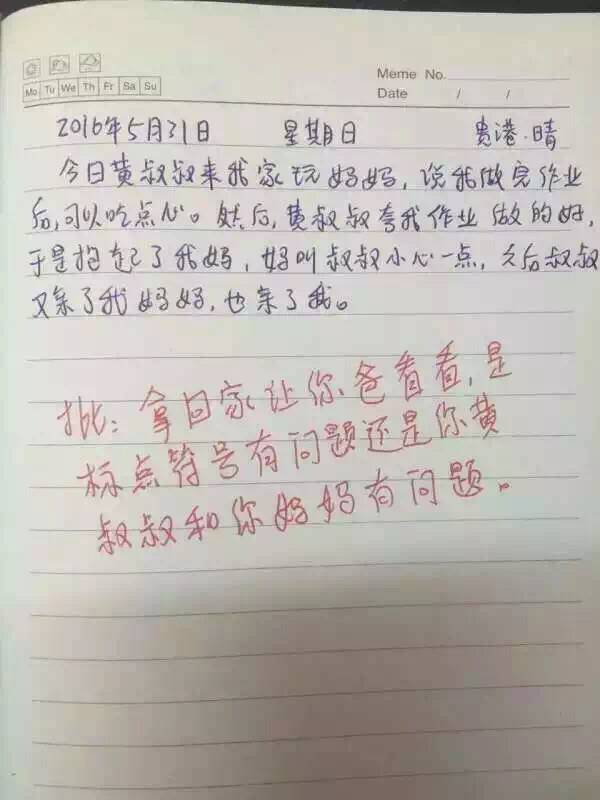 Meme No.
Mo Tu We Th Fr Sa Su
Date / /
2016年5月31日 星期日 贵港.晴
今日黄叔叔来我家玩妈妈，说我做完作业
后，可以吃点心。然后，黄叔叔夸我作业做的好，
于是抱起了我妈，妈叫叔叔小心一点，之后叔叔
又亲了我妈妈，也亲了我。
批：拿回家让你爸看看，是
标点符号有问题还是你黄
叔叔和你妈妈有问题。